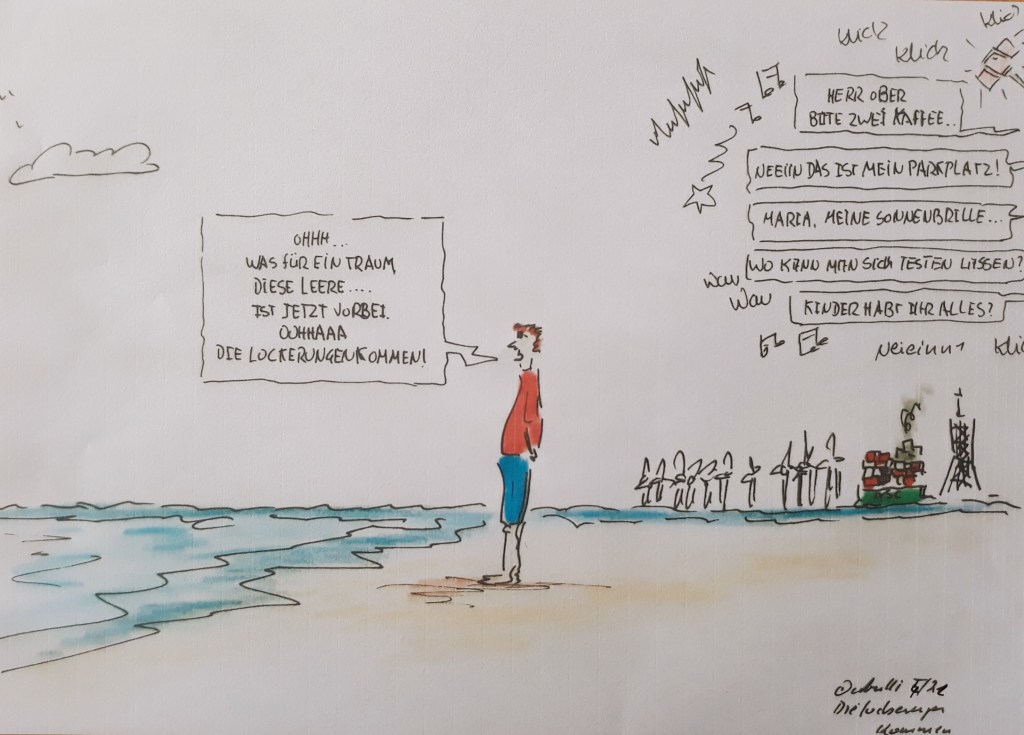 OHHH...
WAS FÜR EIN TRAUM
DIESE LEERE....
IST JETZT VORBEI.
OUHHAAA
DIE LOCKERUNGEN KOMMEN!
KLICK
KLICK
KLIC
HERR OBER
BITTE ZWEI KAFFEE..
NEEIIN DAS IST MEIN PARKPLATZ!
MARIA, MEINE SONNENBRILLE...
WO KANN MAN SICH TESTEN LASSEN?
WAU
WAU
KINDER HABT IHR ALLES?
NEIEINNN
KLIC
5/21
Die Lockerungen
kommen